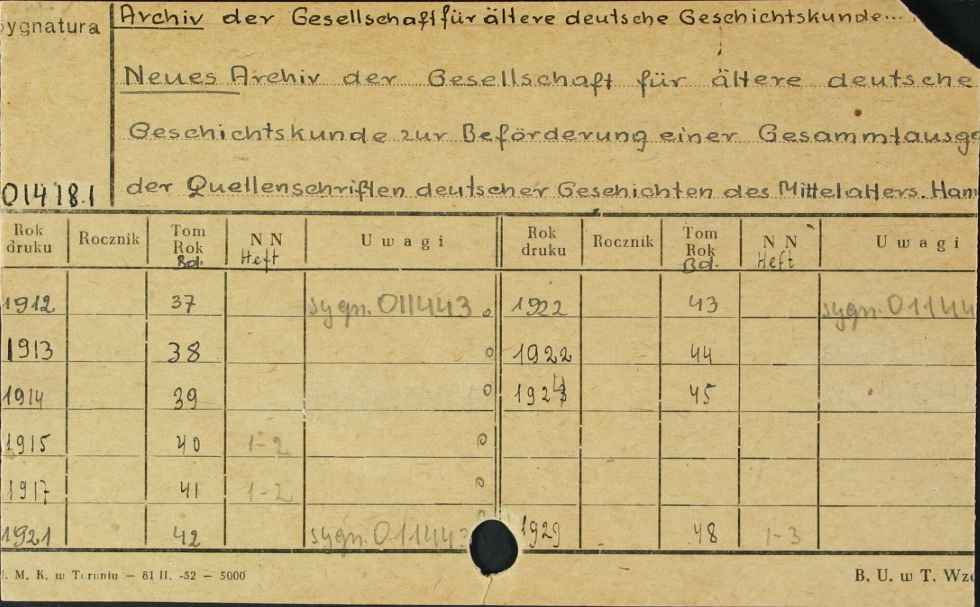 ygnatura
Archiv der Gesellschaft für ältere deutsche Geschichtskunde...
Neues Archiv der Gesellschaft für ältere deutsche
Geschichtskunde zur Beförderung einer Gesammtausg
014181 der Quellenschriften deutscher Geschichten des Mittelalters. Han
Rok druku Rocznik Tom Rok Bd. NN Heft Uwagi Rok druku Rocznik Tom Rok Bd. NN Heft Uwagi
1912 37 sygn. 011443 1922 43 sygn. 01144
1913 38 1922 44
1914 39 1924 45
1915 40 1-2
1917 41 1-2
1921 42 sygn. 011443 1929 48 1-3
M. K. w Toruniu — 81 II. -52 — 5000 B. U. w T. Wz